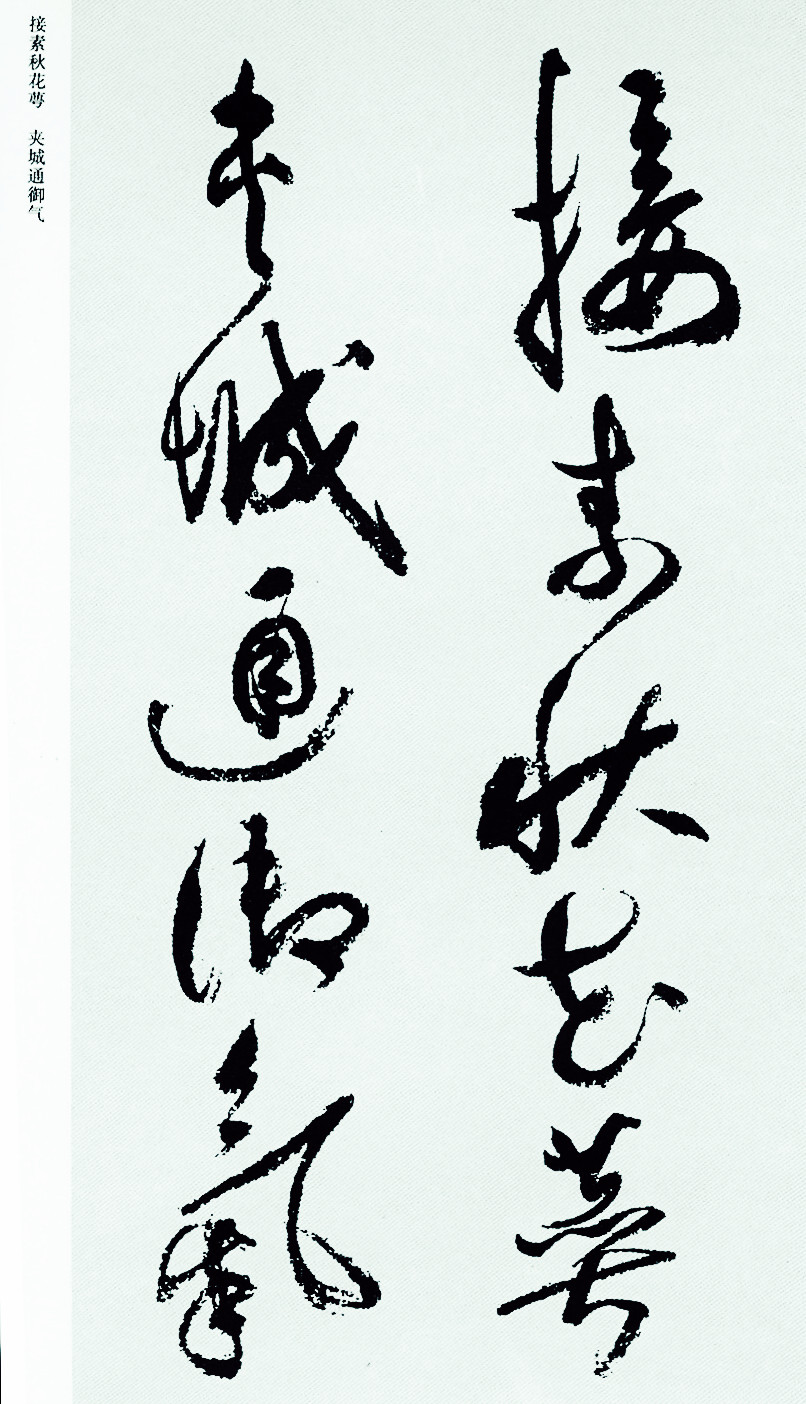 接素秋花萼
夾城通御氣
接素秋花萼　夹城通御气